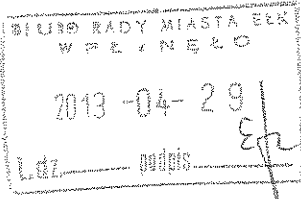 BIURO RADY MIASTA EŁK
WPŁYNĘŁO
2013 -04- 29
L.dz. podpis